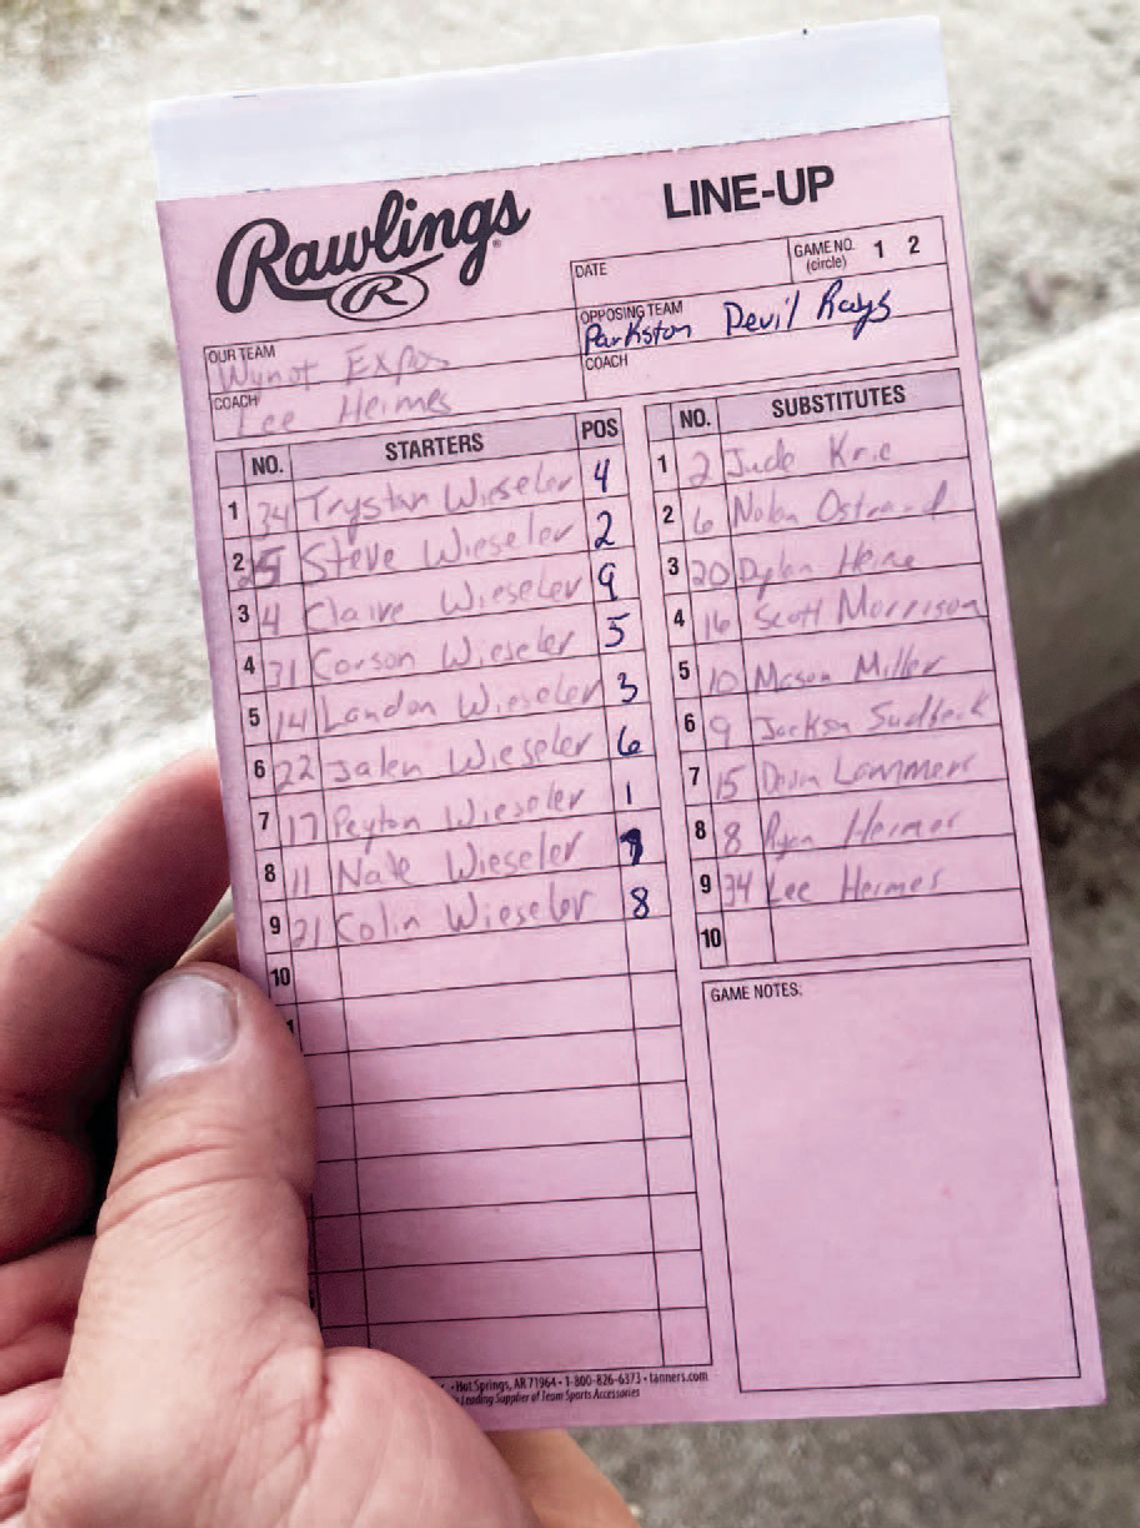 Rawlings®
R
LINE-UP
DATE
GAME NO. (circle) 1 2
OPPOSING TEAM
Parkston Devil Rays
COACH
OUR TEAM
Wynot Expos
COACH
Lee Heimes
NO. STARTERS POS
1 34 Trystan Wieseler 4
2 25 Steve Wieseler 2
3 4 Claire Wieseler 9
4 31 Corson Wieseler 5
5 14 Landon Wieseler 3
6 22 Jalen Wieseler 6
7 17 Peyton Wieseler 1
8 11 Nate Wieseler
9 21 Colin Wieseler 8
10
NO. SUBSTITUTES
1 2 Jude Krie
2 6 Nolan Ostrand
3 20 Dylan Heine
4 16 Scott Morrison
5 10 Mason Miller
6 9 Jackson Sudbeck
7 15 Lammers
8 8 Ryan Heimes
9 34 Lee Heimes
10
GAME NOTES:
• Hot Springs, AR 71964 • 1-800-826-6373 • tanners.com
Leading Supplier of Team Sports Accessories